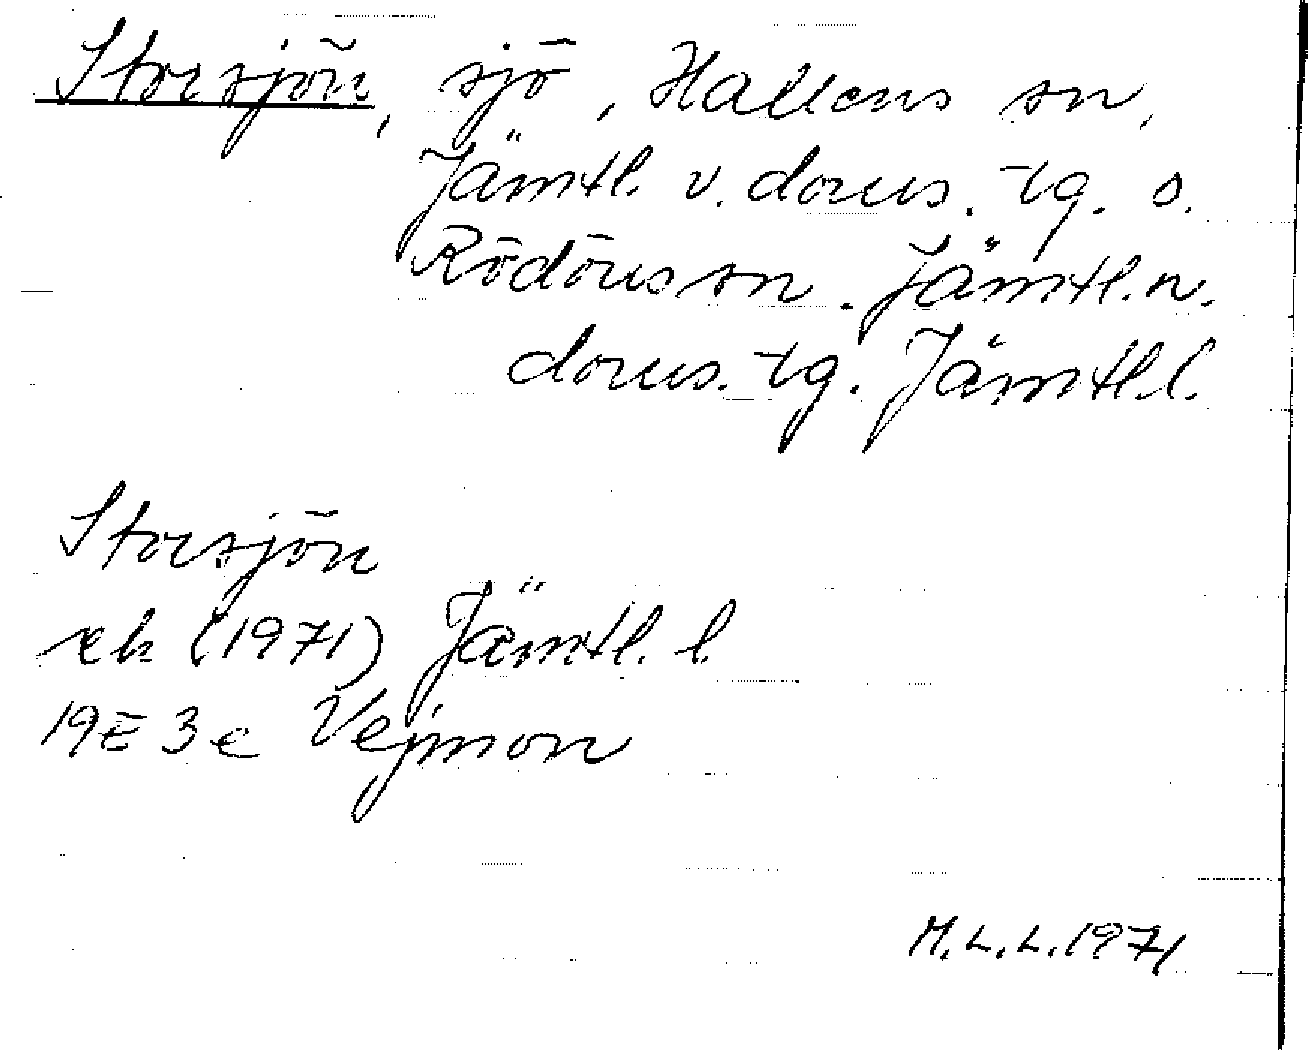 Storsjön, sjö, Hallens sn,
Jämtl. v. doms. tg. o.
Rödöns sn. Jämtl. n.
doms. tg. Jämtl. l.
Storsjön
ek (1971) Jämtl. l.
19E 3e Vejmon
M.L.L. 1971